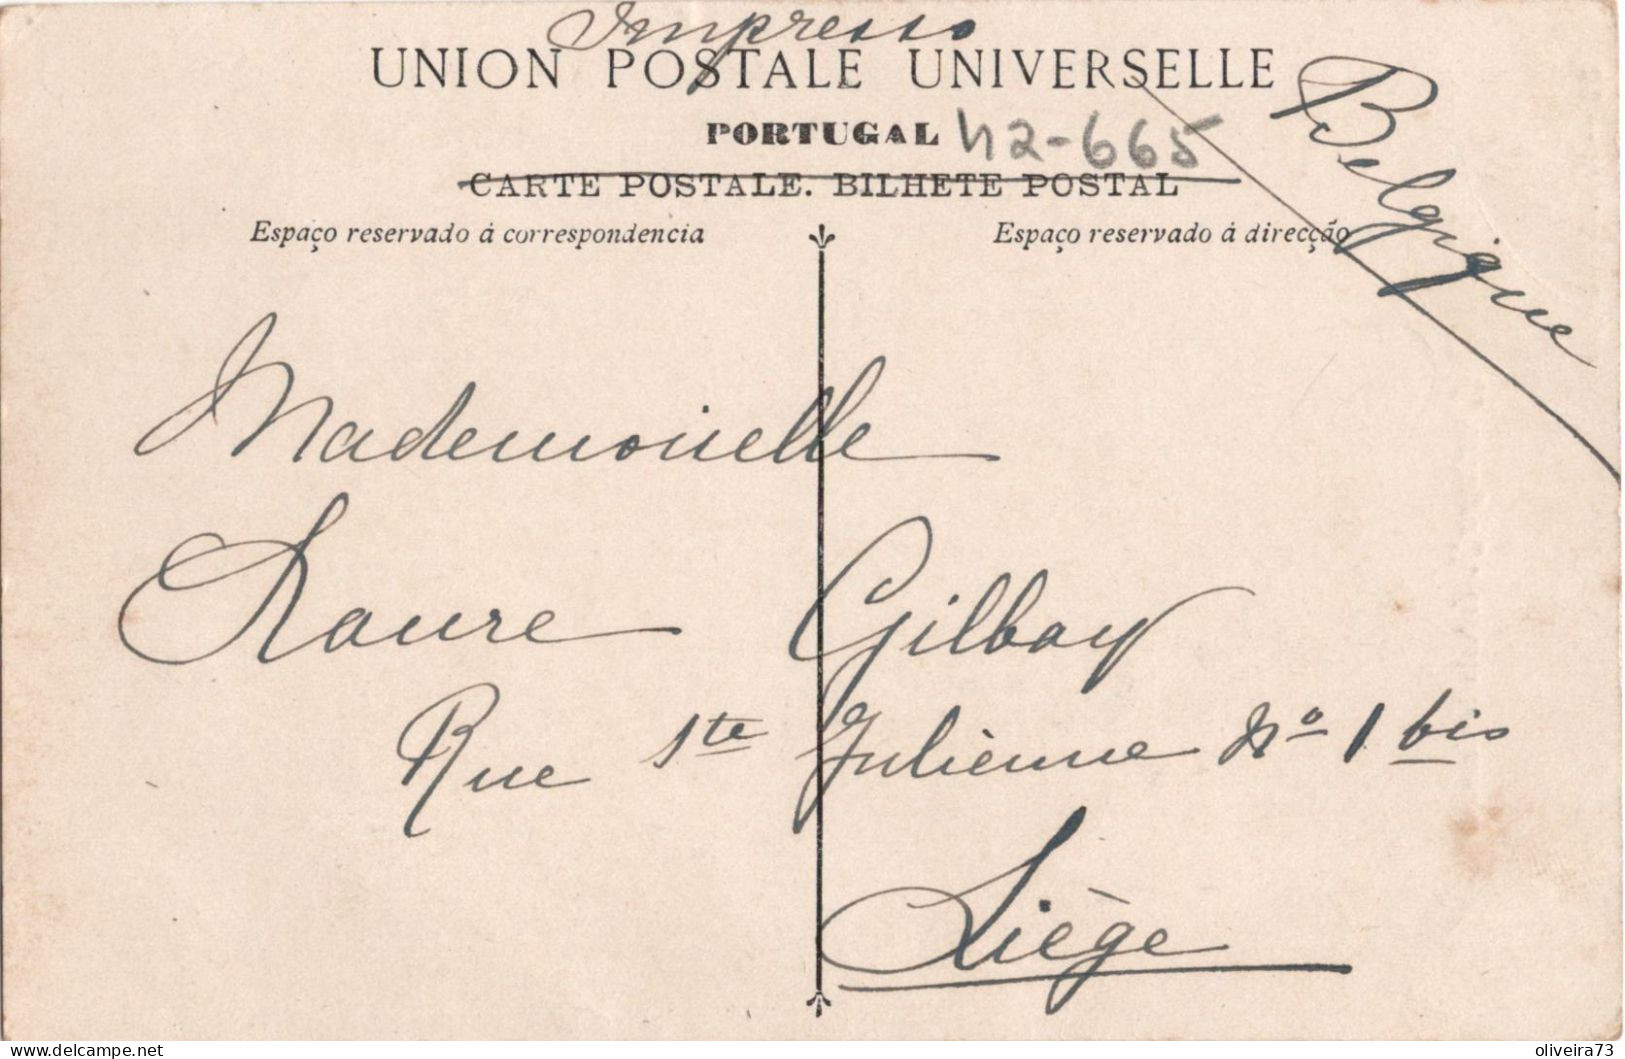 Impresso
UNION POSTALE UNIVERSELLE
PORTUGAL 42-665
CARTE POSTALE. BILHETE POSTAL
Espaço reservado á correspondencia
Espaço reservado á direcção
Belgique
Mademoiselle
Laure Gilbay
Rue Ste Julienne No 1 bis
Liège
oliveira73